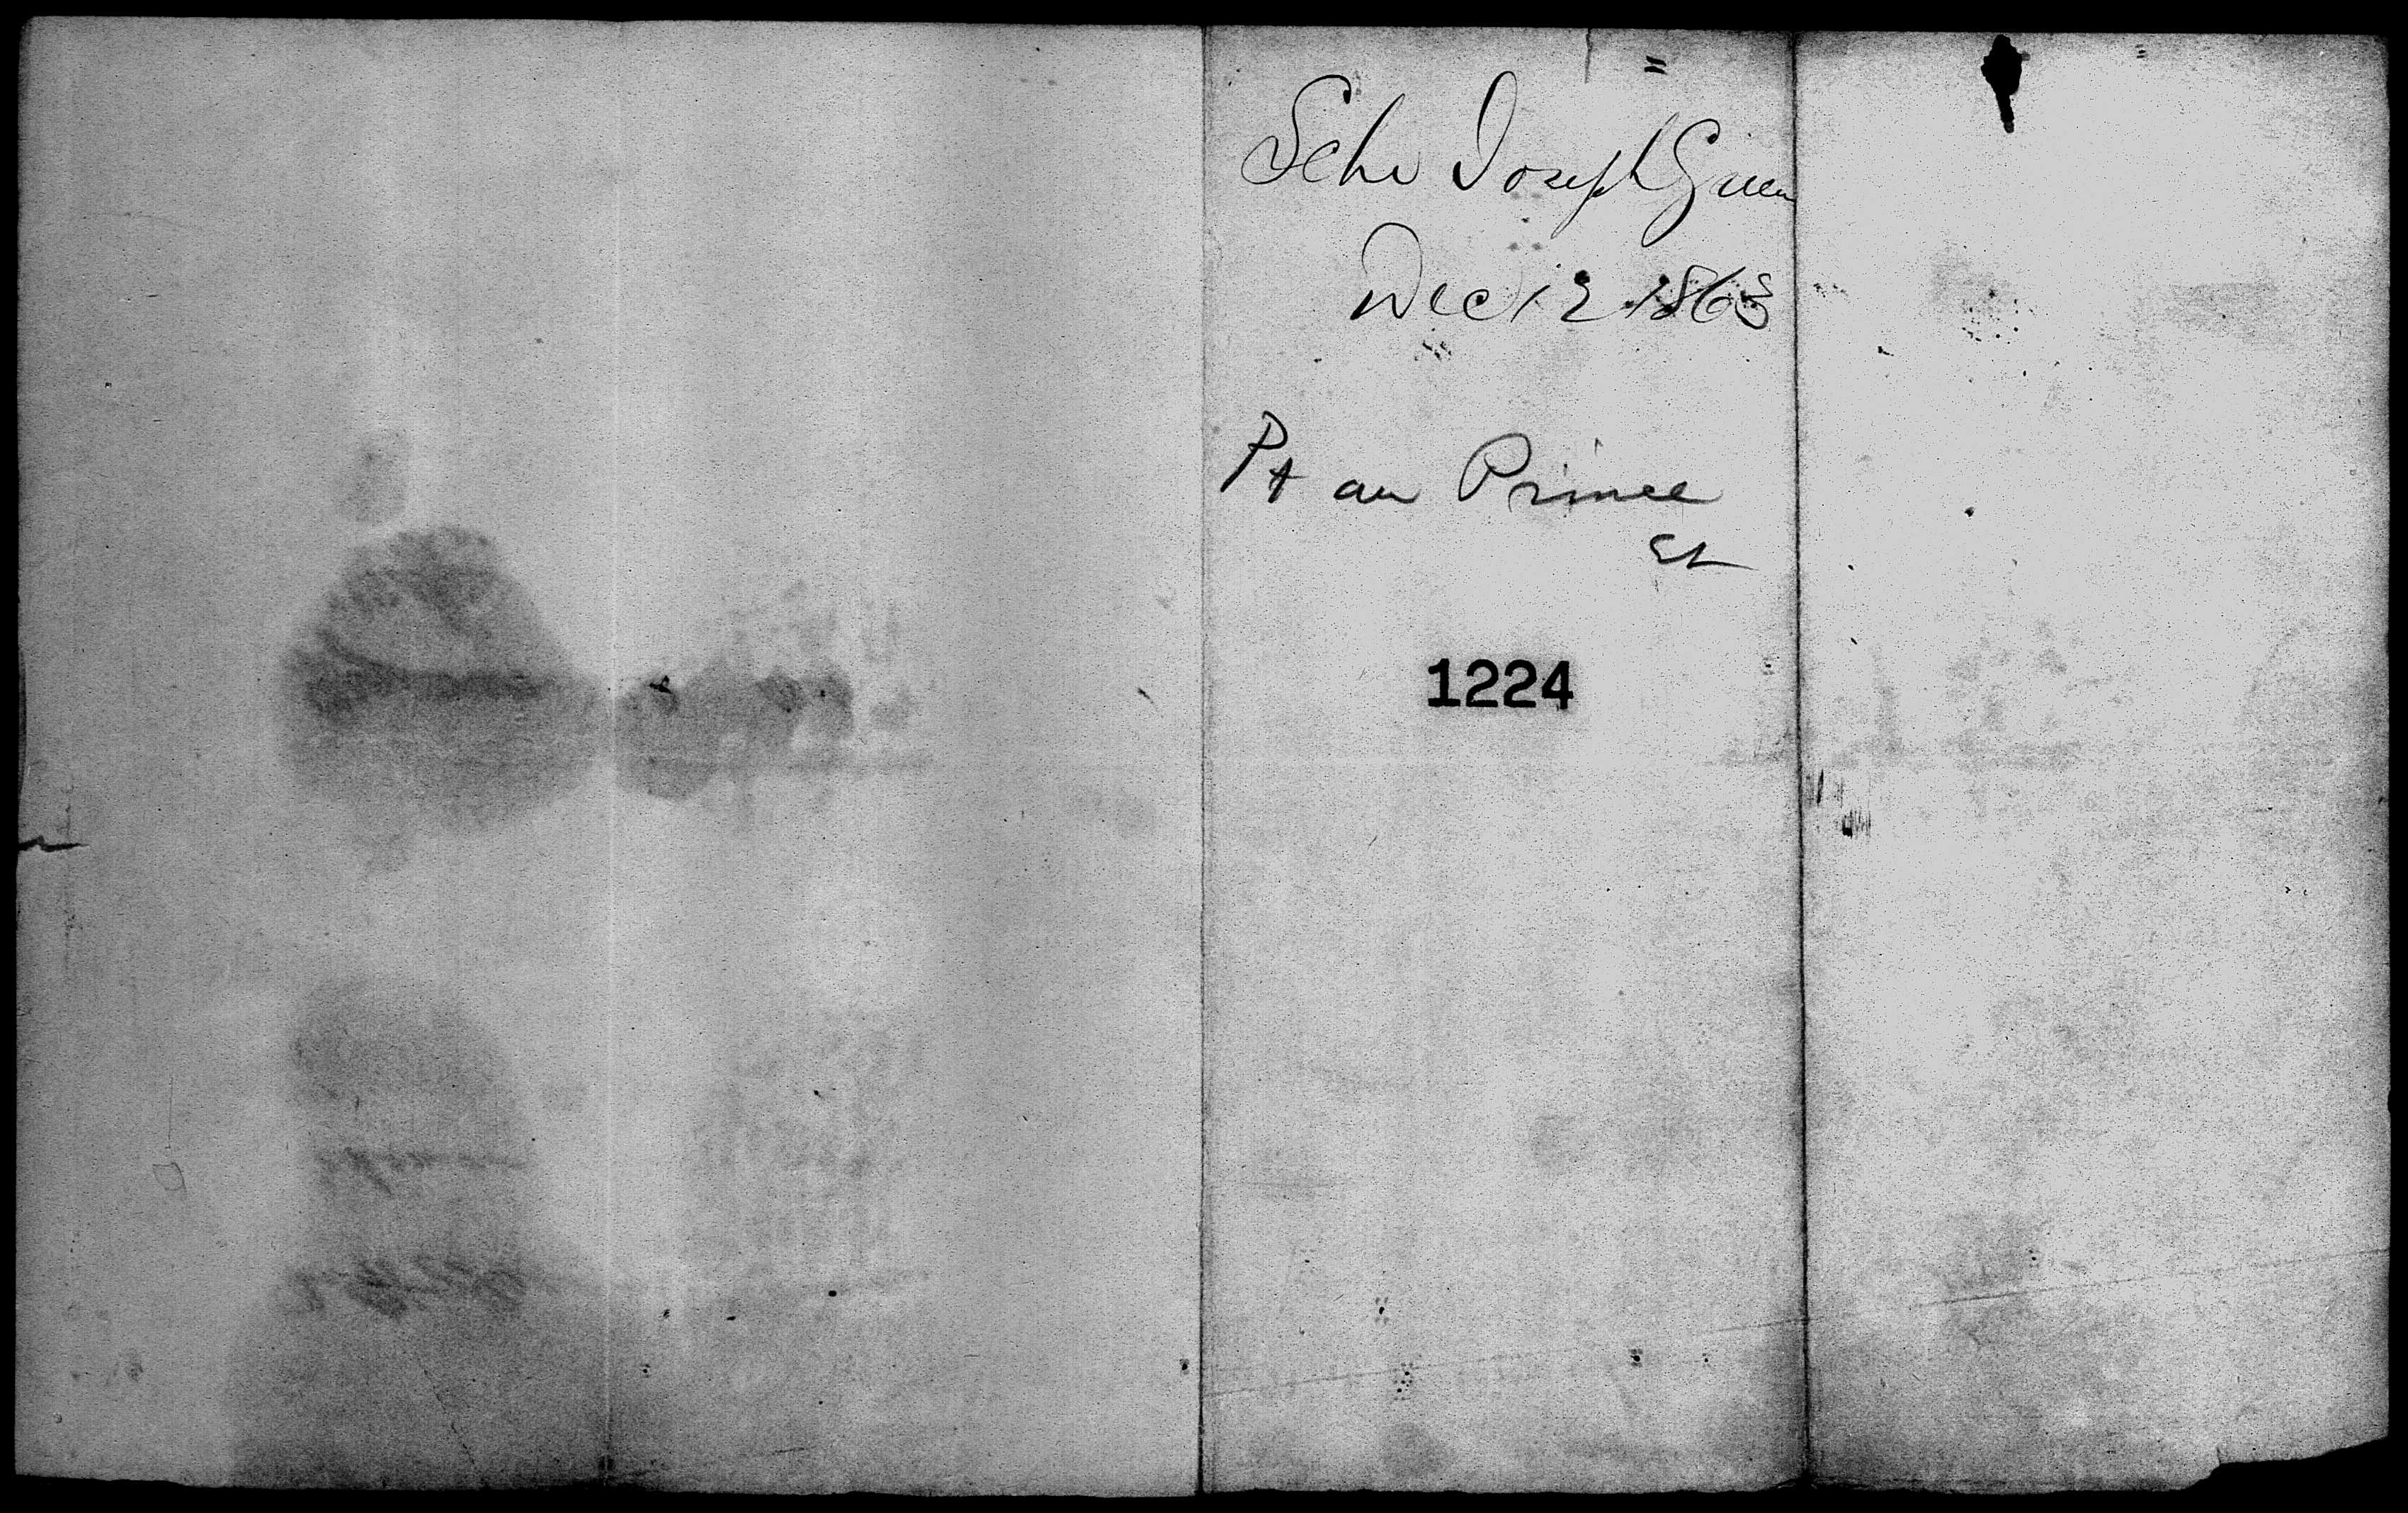 Schr Joseph Green
Dec 12 1863
Pt au Prince
1224